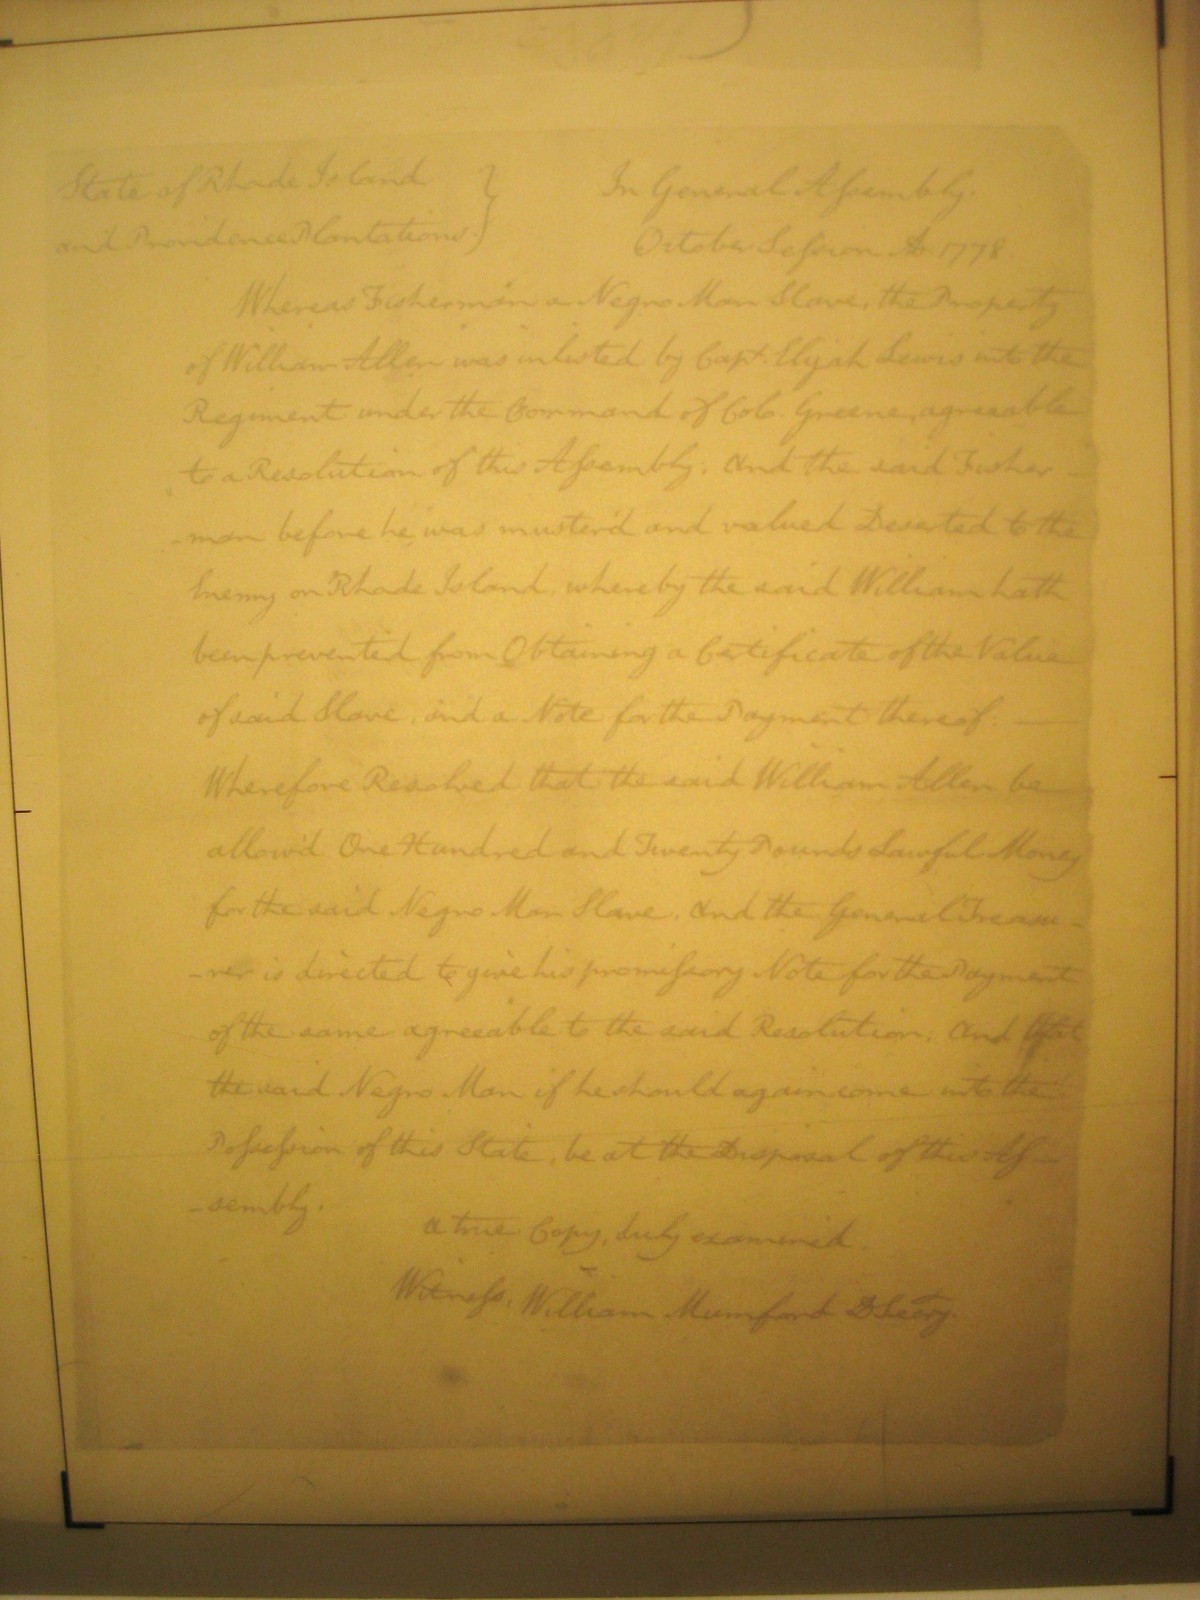 State of Rhode Island } In General Assembly.
and Providence Plantations. } October Session A.D. 1778
Whereas Fisherman a Negro Man Slave, the Property
of William Allen was inlisted by Capt. Elijah Lewis into the
Regiment under the Command of Colo. Greene, agreeable
to a Resolution of this Assembly: And the said Fisher-
-man before he was muster'd and valued Deserted to the
Enemy on Rhode Island, whereby the said William hath
been prevented from Obtaining a Certificate of the Value
of said Slave, and a Note for the Payment thereof. —
Wherefore Resolved that the said William Allen be
allow'd One Hundred and Twenty Pounds Lawful Money
for the said Negro Man Slave. And the General Treasu-
-rer is directed to give his promissory Note for the Payment
of the same agreeable to the said Resolution. And that
the said Negro Man if he should again come into the
Possession of this State, be at the Disposal of this As-
-sembly.
a true Copy, duly examined.
Witness, William Mumford D Secry.